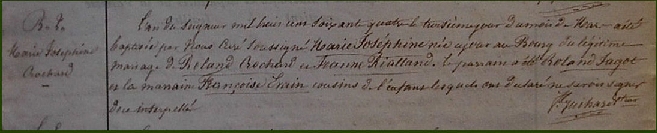 B. 4.
Marie Joséphine
Crochard
L'an du Seigneur mil huit cent soixante quatre le troisième jour du mois de Mai a été
baptisée par Nous Curé soussigné Marie Joséphine née ce jour au Bourg du légitime
mariage de Roland Crochard et Jeanne Riolland le parrain a été Roland Jagot
et la marraine Françoise cousins de l'enfant lesquels ont déclaré ne savoir signer
de ce interpellés